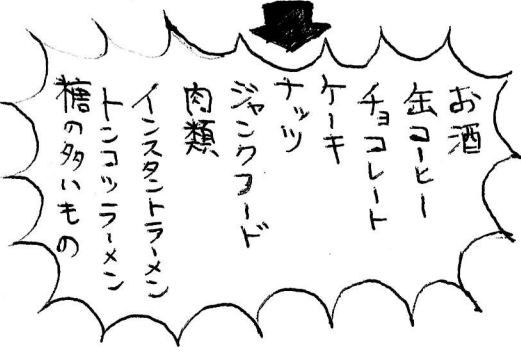 お酒
缶コーヒー
チョコレート
ケーキ
ナッツ
ジャンクフード
肉類
インスタントラーメン
トンコツラーメン
糖の多いもの